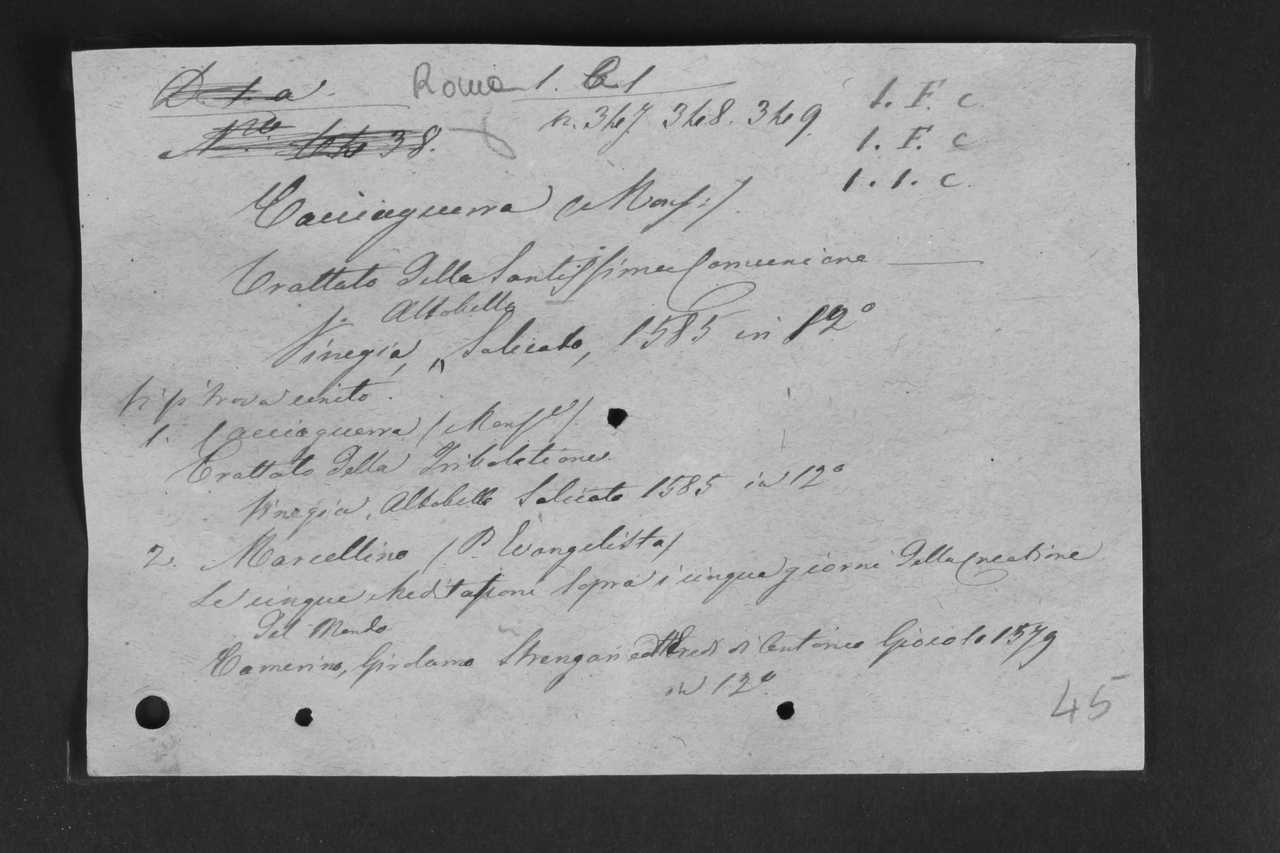 Roma 1. C. 1
n. 347 348. 349
1. F. c
1. F. c
1. 1. c.
38.
Cacciaguerra (Monsr)
Trattato della Santissima Comunione
Vinegia, Altobello Salicato, 1585 in 12º
Vi si trova unito.
1. Cacciaguerra (Monsr)
Trattato della Tribolatione
Vinegia, Altobello Salicato 1585 in 12º
2. Marcellino (P. Evangelista)
Le cinque Meditationi sopra i cinque giorni della Creatione
del Mondo
Camerino, Girolamo Strengari ed Eredi di Antonio Gioiolo 1579
in 12º
45